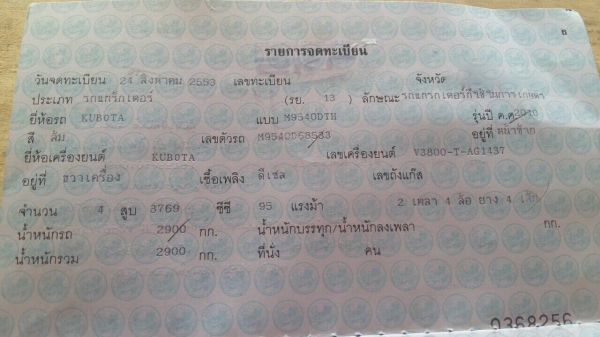 8
รายการจดทะเบียน
วันจดทะเบียน 24 สิงหาคม 2553 เลขทะเบียน จังหวัด
ประเภท รถแทรกเตอร์ (รย. 13 ) ลักษณะ รถแทรกเตอร์ที่ใช้ในการเกษตร
ยี่ห้อรถ KUBOTA แบบ M9540DTH รุ่นปี ค.ศ. 2010
สี ส้ม เลขตัวรถ M9540D68533 อยู่ที่ หน้าซ้าย
ยี่ห้อเครื่องยนต์ KUBOTA เลขเครื่องยนต์ V3800-T-AG1437
อยู่ที่ ขวาเครื่อง เชื้อเพลิง ดีเซล เลขถังแก๊ส
จำนวน 4 สูบ 3769 ซีซี 95 แรงม้า 2 เพลา 4 ล้อ ยาง 4 เส้น
น้ำหนักรถ 2900 กก. น้ำหนักบรรทุก/น้ำหนักลงเพลา กก.
น้ำหนักรวม 2900 กก. ที่นั่ง คน
0368256